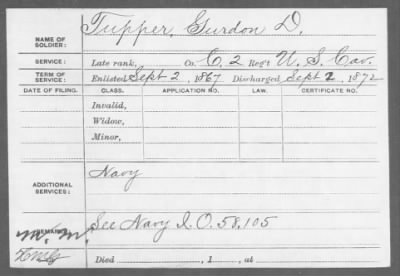 NAME OF SOLDIER: Tupper, Gurdon D.
SERVICE: Late rank, Co. C, 2 Reg't U. S. Cav.
TERM OF SERVICE: Enlisted Sept 2, 1867 Discharged Sept 2, 1872
DATE OF FILING. CLASS. APPLICATION NO. LAW. CERTIFICATE NO.
Invalid,
Widow,
Minor,
ADDITIONAL SERVICES: Navy
REMARKS: See Navy I. O. 58,105
m. m.
Died , 1 , at